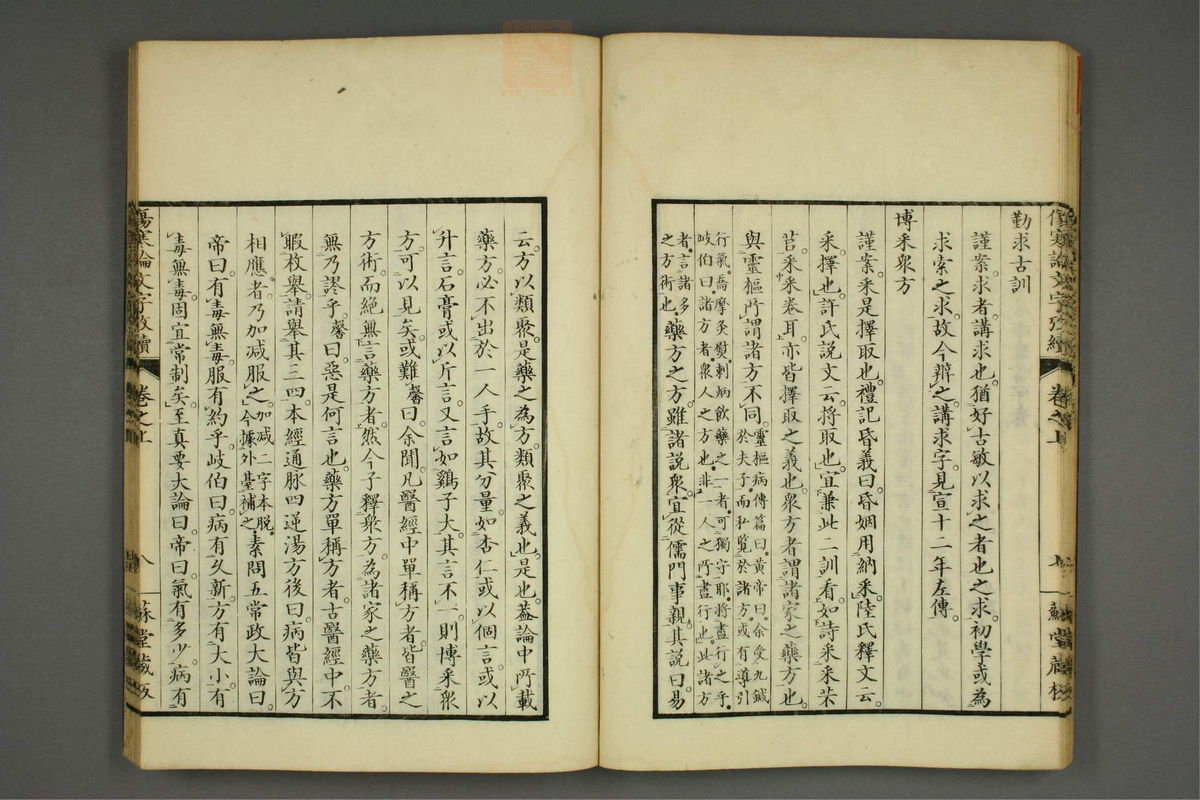 勤求古訓
謹案求者講求也猶好古敏以求之者也之求初學或為
求索之求故今辨之講求字見宣十二年左傳
博采衆方
謹案采是擇取也禮記昏義曰昏姻用納采陸氏釋文云
采擇也許氏說文云捋取也宜兼此二訓看如詩采采芣
苢采采卷耳亦皆擇取之義也衆方者謂諸家之藥方也
與靈樞所謂諸方不同靈樞病傳篇曰黃帝曰余受九鍼
於夫子而私覽於諸方或有導引
行氣喬摩灸熨刺焫飲藥之一者可獨守耶將盡行之乎
岐伯曰諸方者衆人之方也非一人之所盡行也此諸方
者言諸多
之方術也藥方之方雖諸說衆宜從儒門事親其說曰易
云方以類聚是藥之為方類聚之義也是也蓋論中所載
藥方必不出於一人手故其分量如杏仁或以個言或以
升言石膏或以斤言又言如鷄子大其言不一則博采衆
方可以見矣或難馨曰余聞凡醫經中單稱方者皆醫之
方術而絕無言藥方者然今子釋衆方為諸家之藥方者
無乃謬乎馨曰惡是何言也藥方單稱方者古醫經中不
暇枚舉請舉其三四本經通脉四逆湯方後曰病皆與方
相應者乃加减服之加减二字本脱
今據外臺補之素問五常政大論曰
帝曰有毒無毒服有約乎岐伯曰病有久新方有大小有
毒無毒固宜常制矣至真要大論曰帝曰氣有多少病有
傷寒論文字攷續
卷之上
八
蘇堂藏板